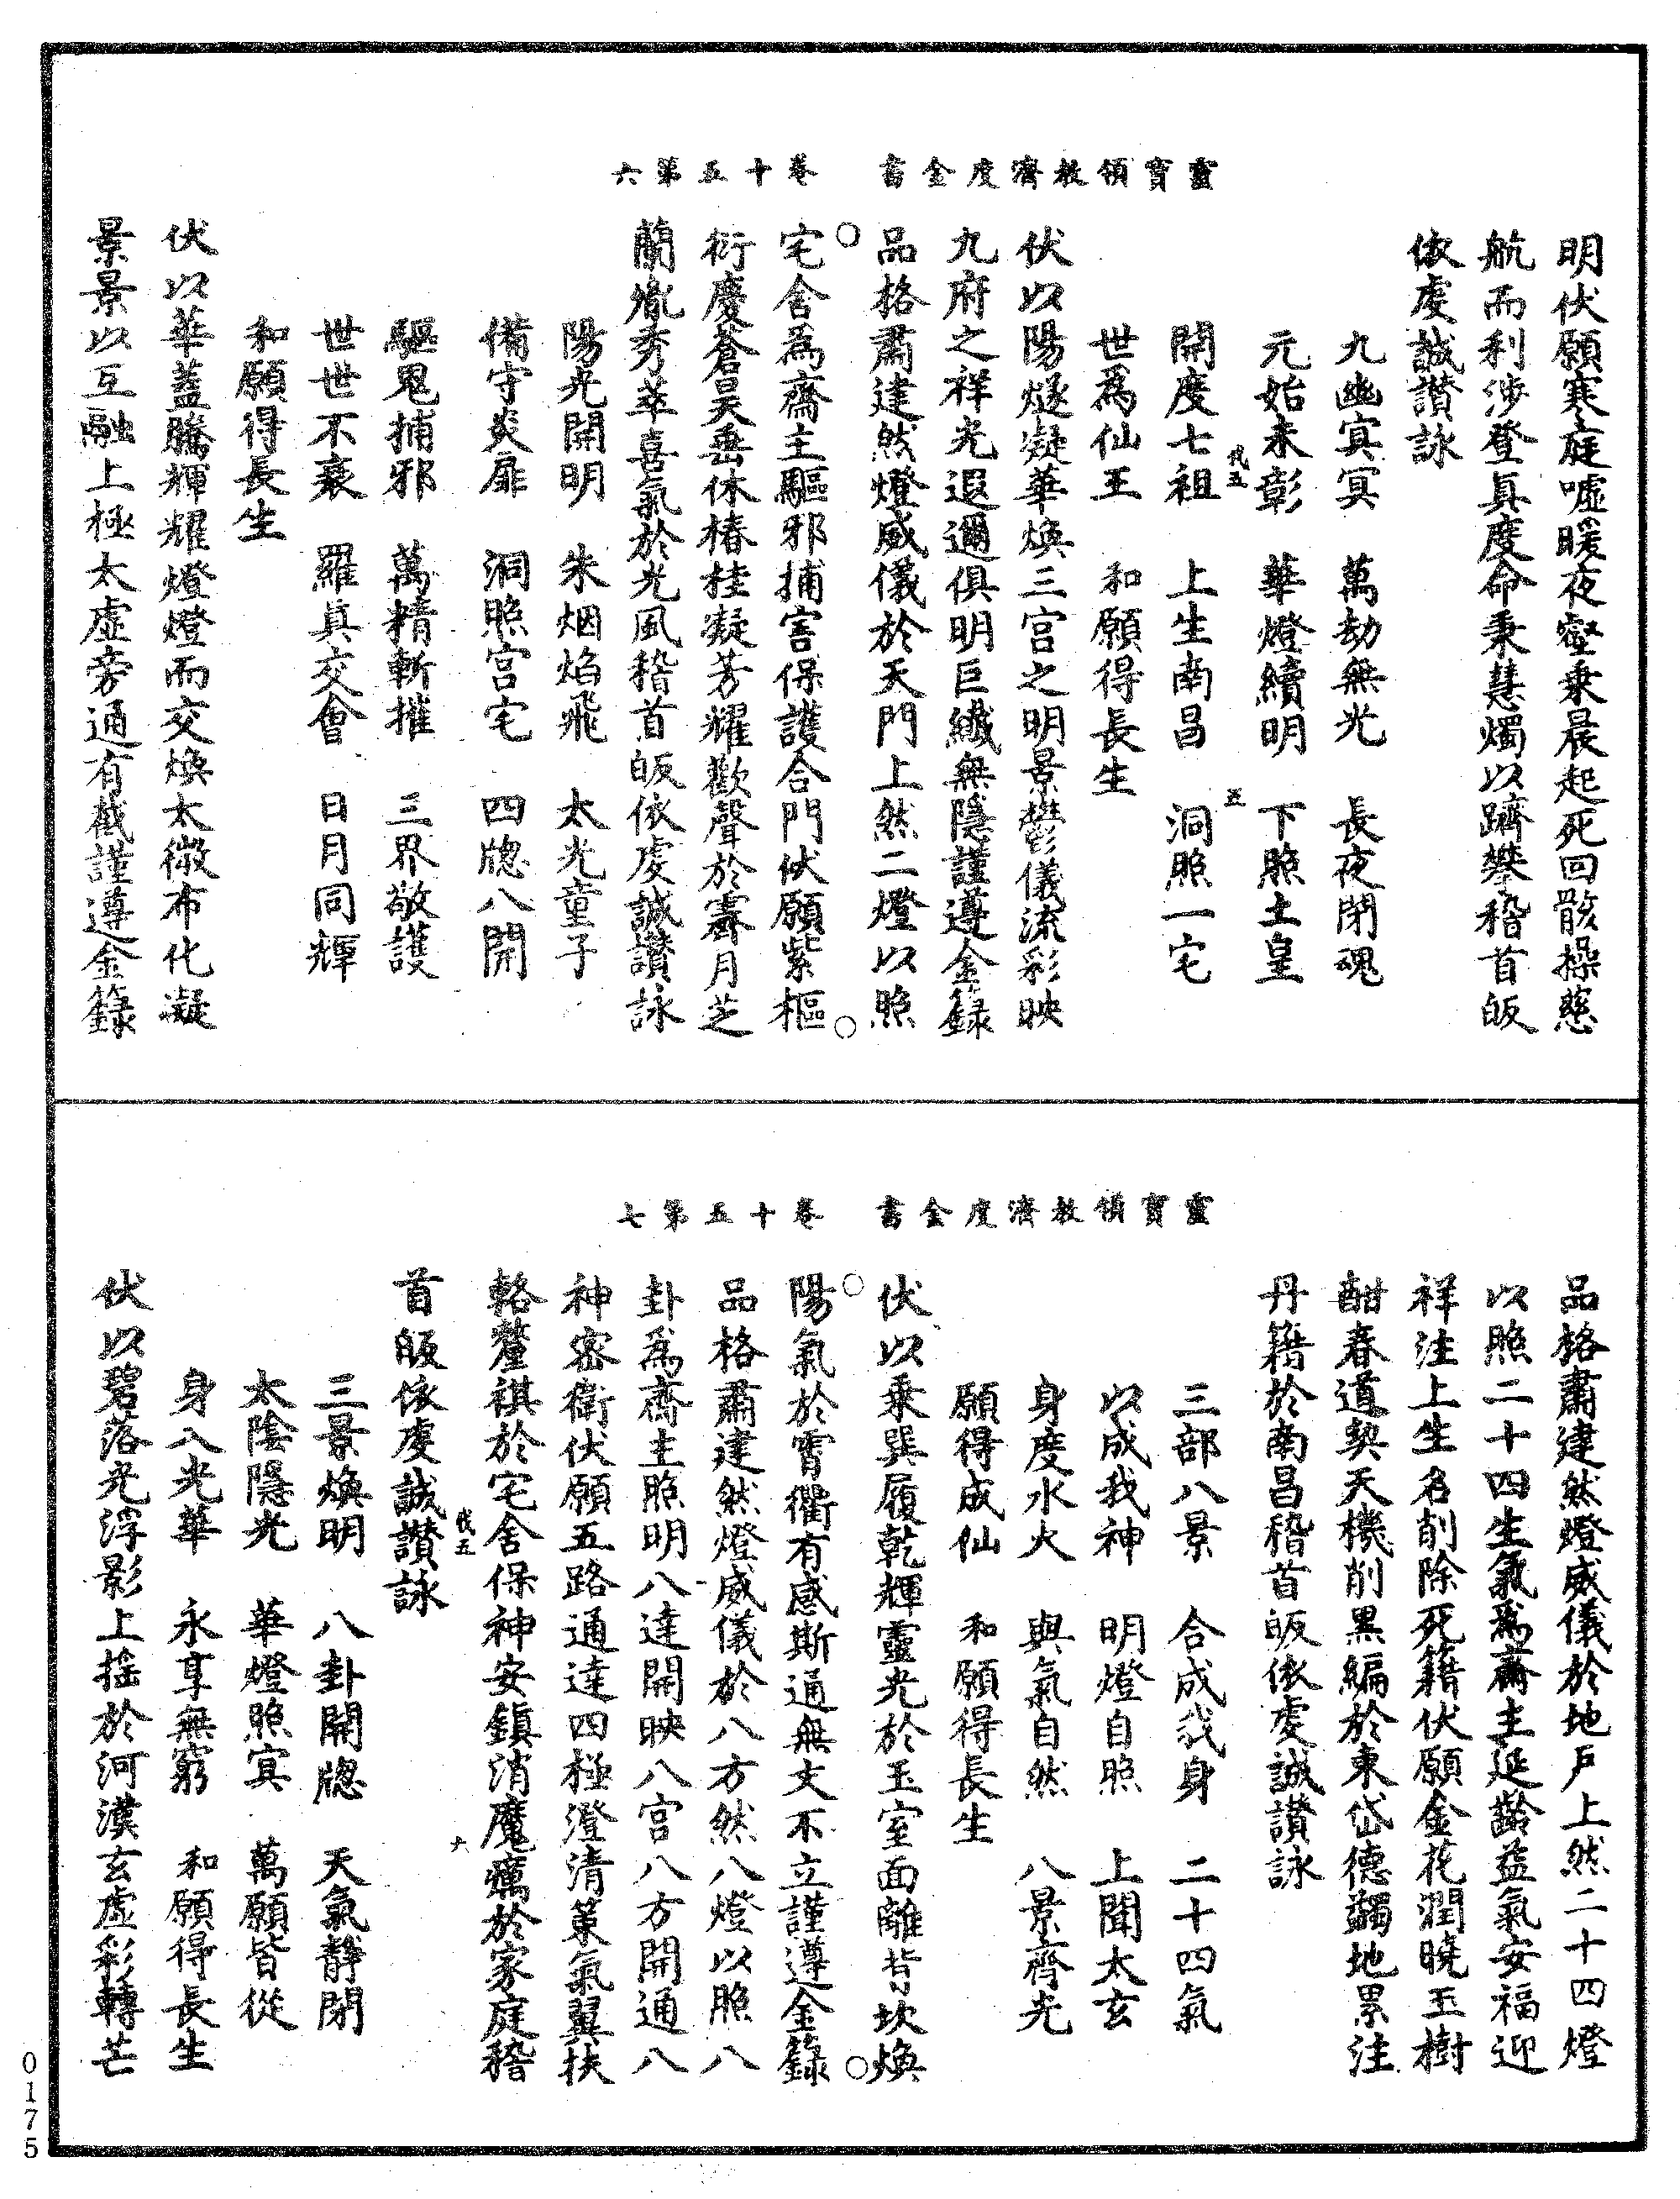 靈寶領教濟度金書　卷十五第六
明伏願寒庭噓暖夜壑秉晨起死回骸操慈
航而利涉登真度命秉慧燭以躋攀稽首皈
依虔誠讚詠
九幽冥冥　萬劫無光　長夜閉魂
元始未彰　華燈續明　下照土皇
開度七祖　上生南昌　洞照一宅
世為仙王　和願得長生
伏以陽燧凝華煥三宮之明景鬱儀流彩映
九府之祥光遐邇俱明巨纖無隱謹遵金籙
品格肅建然燈威儀於天門上然二燈以照
宅舍為齋主驅邪捕害保護合門伏願紫樞
衍慶蒼昊垂休椿桂凝芳耀歡聲於霽月芝
蘭胤秀萃喜氣於光風稽首皈依虔誠讚詠
陽光開明　朱烟焰飛　太光童子
備守炎扉　洞照宮宅　四牕八開
驅鬼捕邪　萬精斬摧　三界敬護
世世不衰　羅真交會　日月同輝
和願得長生
伏以華蓋騰輝耀燈燈而交煥太微布化凝
景景以互融上極太虛旁通有截謹遵金籙
靈寶領教濟度金書　卷十五第七
品格肅建然燈威儀於地戶上然二十四燈
以照二十四生氣為齋主延齡益氣安福迎
祥注上生名削除死籍伏願金花潤曉玉樹
酣春道契天機削黑編於東岱德蠲地累注
丹籍於南昌稽首皈依虔誠讚詠
三部八景　合成我身　二十四氣
以成我神　明燈自照　上聞太玄
身度水火　與氣自然　八景齊光
願得成仙　和願得長生
伏以乘巽履乾輝靈光於玉室面離背坎煥
陽氣於霄衢有感斯通無文不立謹遵金籙
品格肅建然燈威儀於八方然八燈以照八
卦為齋主照明八達開映八宮八方開通八
神密衛伏願五路通達四極澄清策氣翼扶
輅釐祺於宅舍保神安鎮消魔癘於家庭稽
首皈依虔誠讚詠
三景煥明　八卦開牕　天氣靜閉
太陰隱光　華燈照冥　萬願皆從
身八光華　永享無窮　和願得長生
伏以碧落光浮影上搖於河漢玄虛彩轉芒
0175